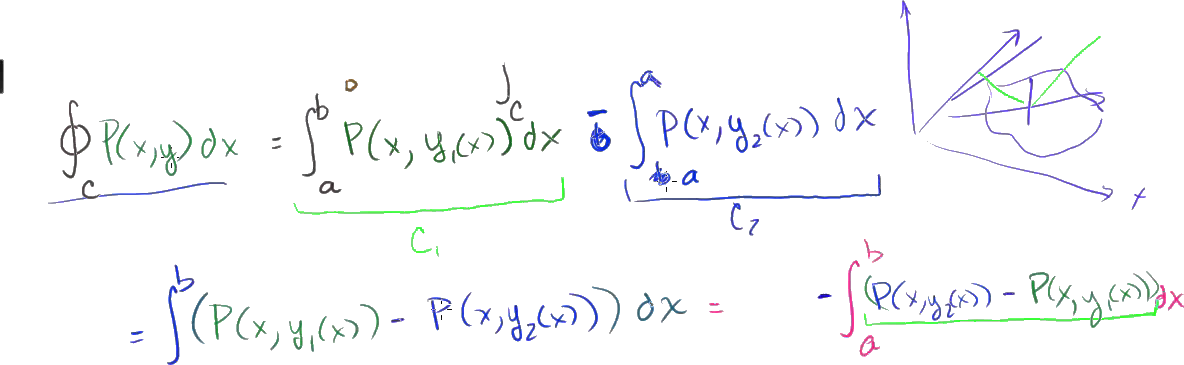 ∮_C P(x,y) dx = ∫_a^b P(x, y₁(x)) dx - ∫_a P(x, y₂(x)) dx
C₁ C₂
= ∫^b (P(x, y₁(x)) - P(x, y₂(x))) dx = - ∫_a^b (P(x, y₂(x)) - P(x, y₁(x))) dx
x